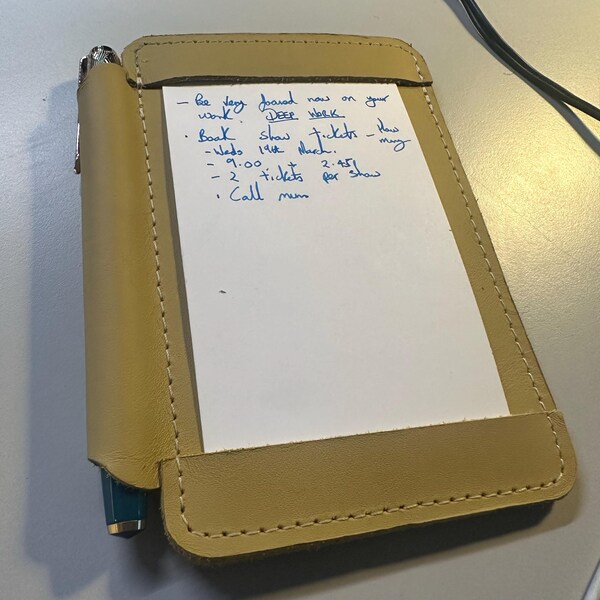 - Be very focused now on your
work. DEEP WORK
• Book show tickets - How
many
- Weds 19th March.
- 9.00 + 2.45
- 2 tickets per show
• Call mum